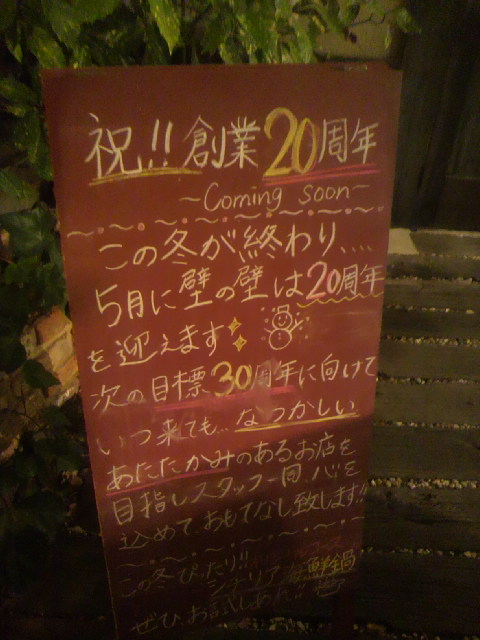 祝!! 創業20周年
~Coming soon~
この冬が終わり....
5月に壁の壁は20周年
を迎えます
次の目標30周年に向けて
いつ来ても…なつかしい
あたたかみのあるお店を
目指しスタッフ一同、心を
込めておもてなし致します!!
この冬ぴったり!!
シチリア海鮮鍋
ぜひお試しあれ!!